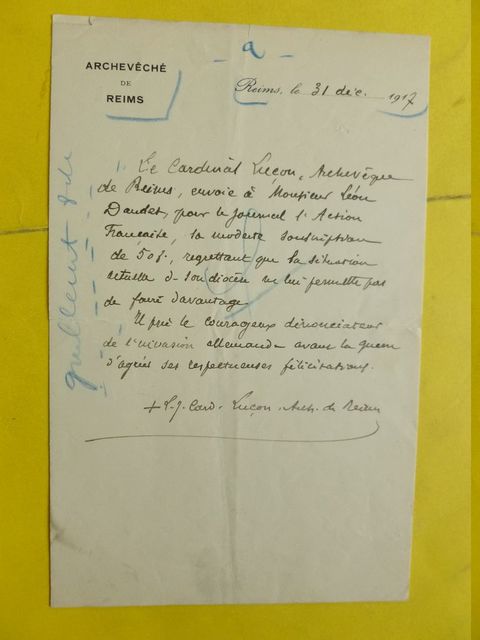 - a -
ARCHEVÊCHÉ
DE
REIMS
Reims, le 31 déc. 1917
Le Cardinal Luçon, Archevêque
de Reims, envoie à Monsieur Léon
Daudet, pour le journal l'Action
Française, sa modeste souscription
de 50 f., regrettant que la situation
actuelle de son diocèse ne lui permette pas
de faire davantage.
Il prie le courageux dénonciateur
de l'invasion allemande avant la guerre
d'agréer ses respectueuses félicitations.
+ L. J. Card. Luçon, Arch. de Reims